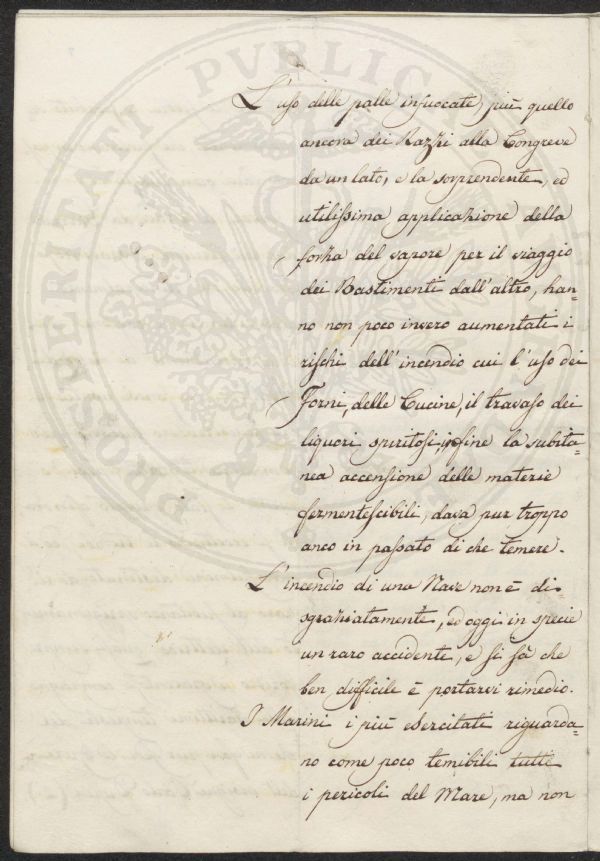 L'uso delle palle infuocate, più quello
ancora dei Razzi alla Congreve
da un lato, e la sorprendente, ed
utilissima applicazione della
forza del vapore per il viaggio
dei Bastimenti dall'altro, han=
no non poco invero aumentati i
rischi dell'incendio cui l'uso dei
Forni, delle Cucine, il travaso dei
liquori spiritosi, infine la subita=
nea accensione delle materie
fermentescibili, dava pur troppo
anco in passato di che temere.
L'incendio di una Nave non è di=
sgraziatamente, ed oggi in specie
un raro accidente, e si sà che
ben difficile è portarvi rimedio.
I Marini i più esercitati riguarda=
no come poco temibili tutti
i pericoli del Mare, ma non